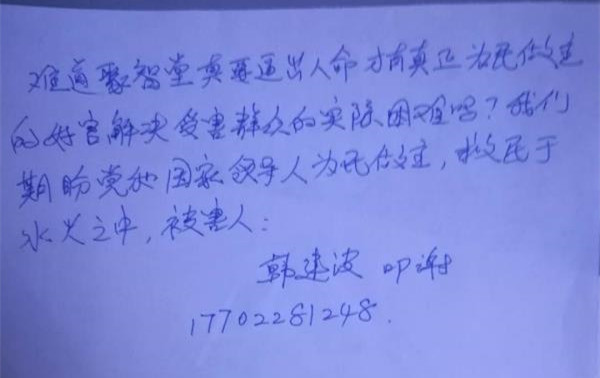 难道聚智堂真要逼出人命才有真正为民做主
的好官解决受害群众的实际困难吗？我们
期盼党和国家领导人为民做主，救民于
水火之中，被害人：
韩建波 叩谢
17702281248.